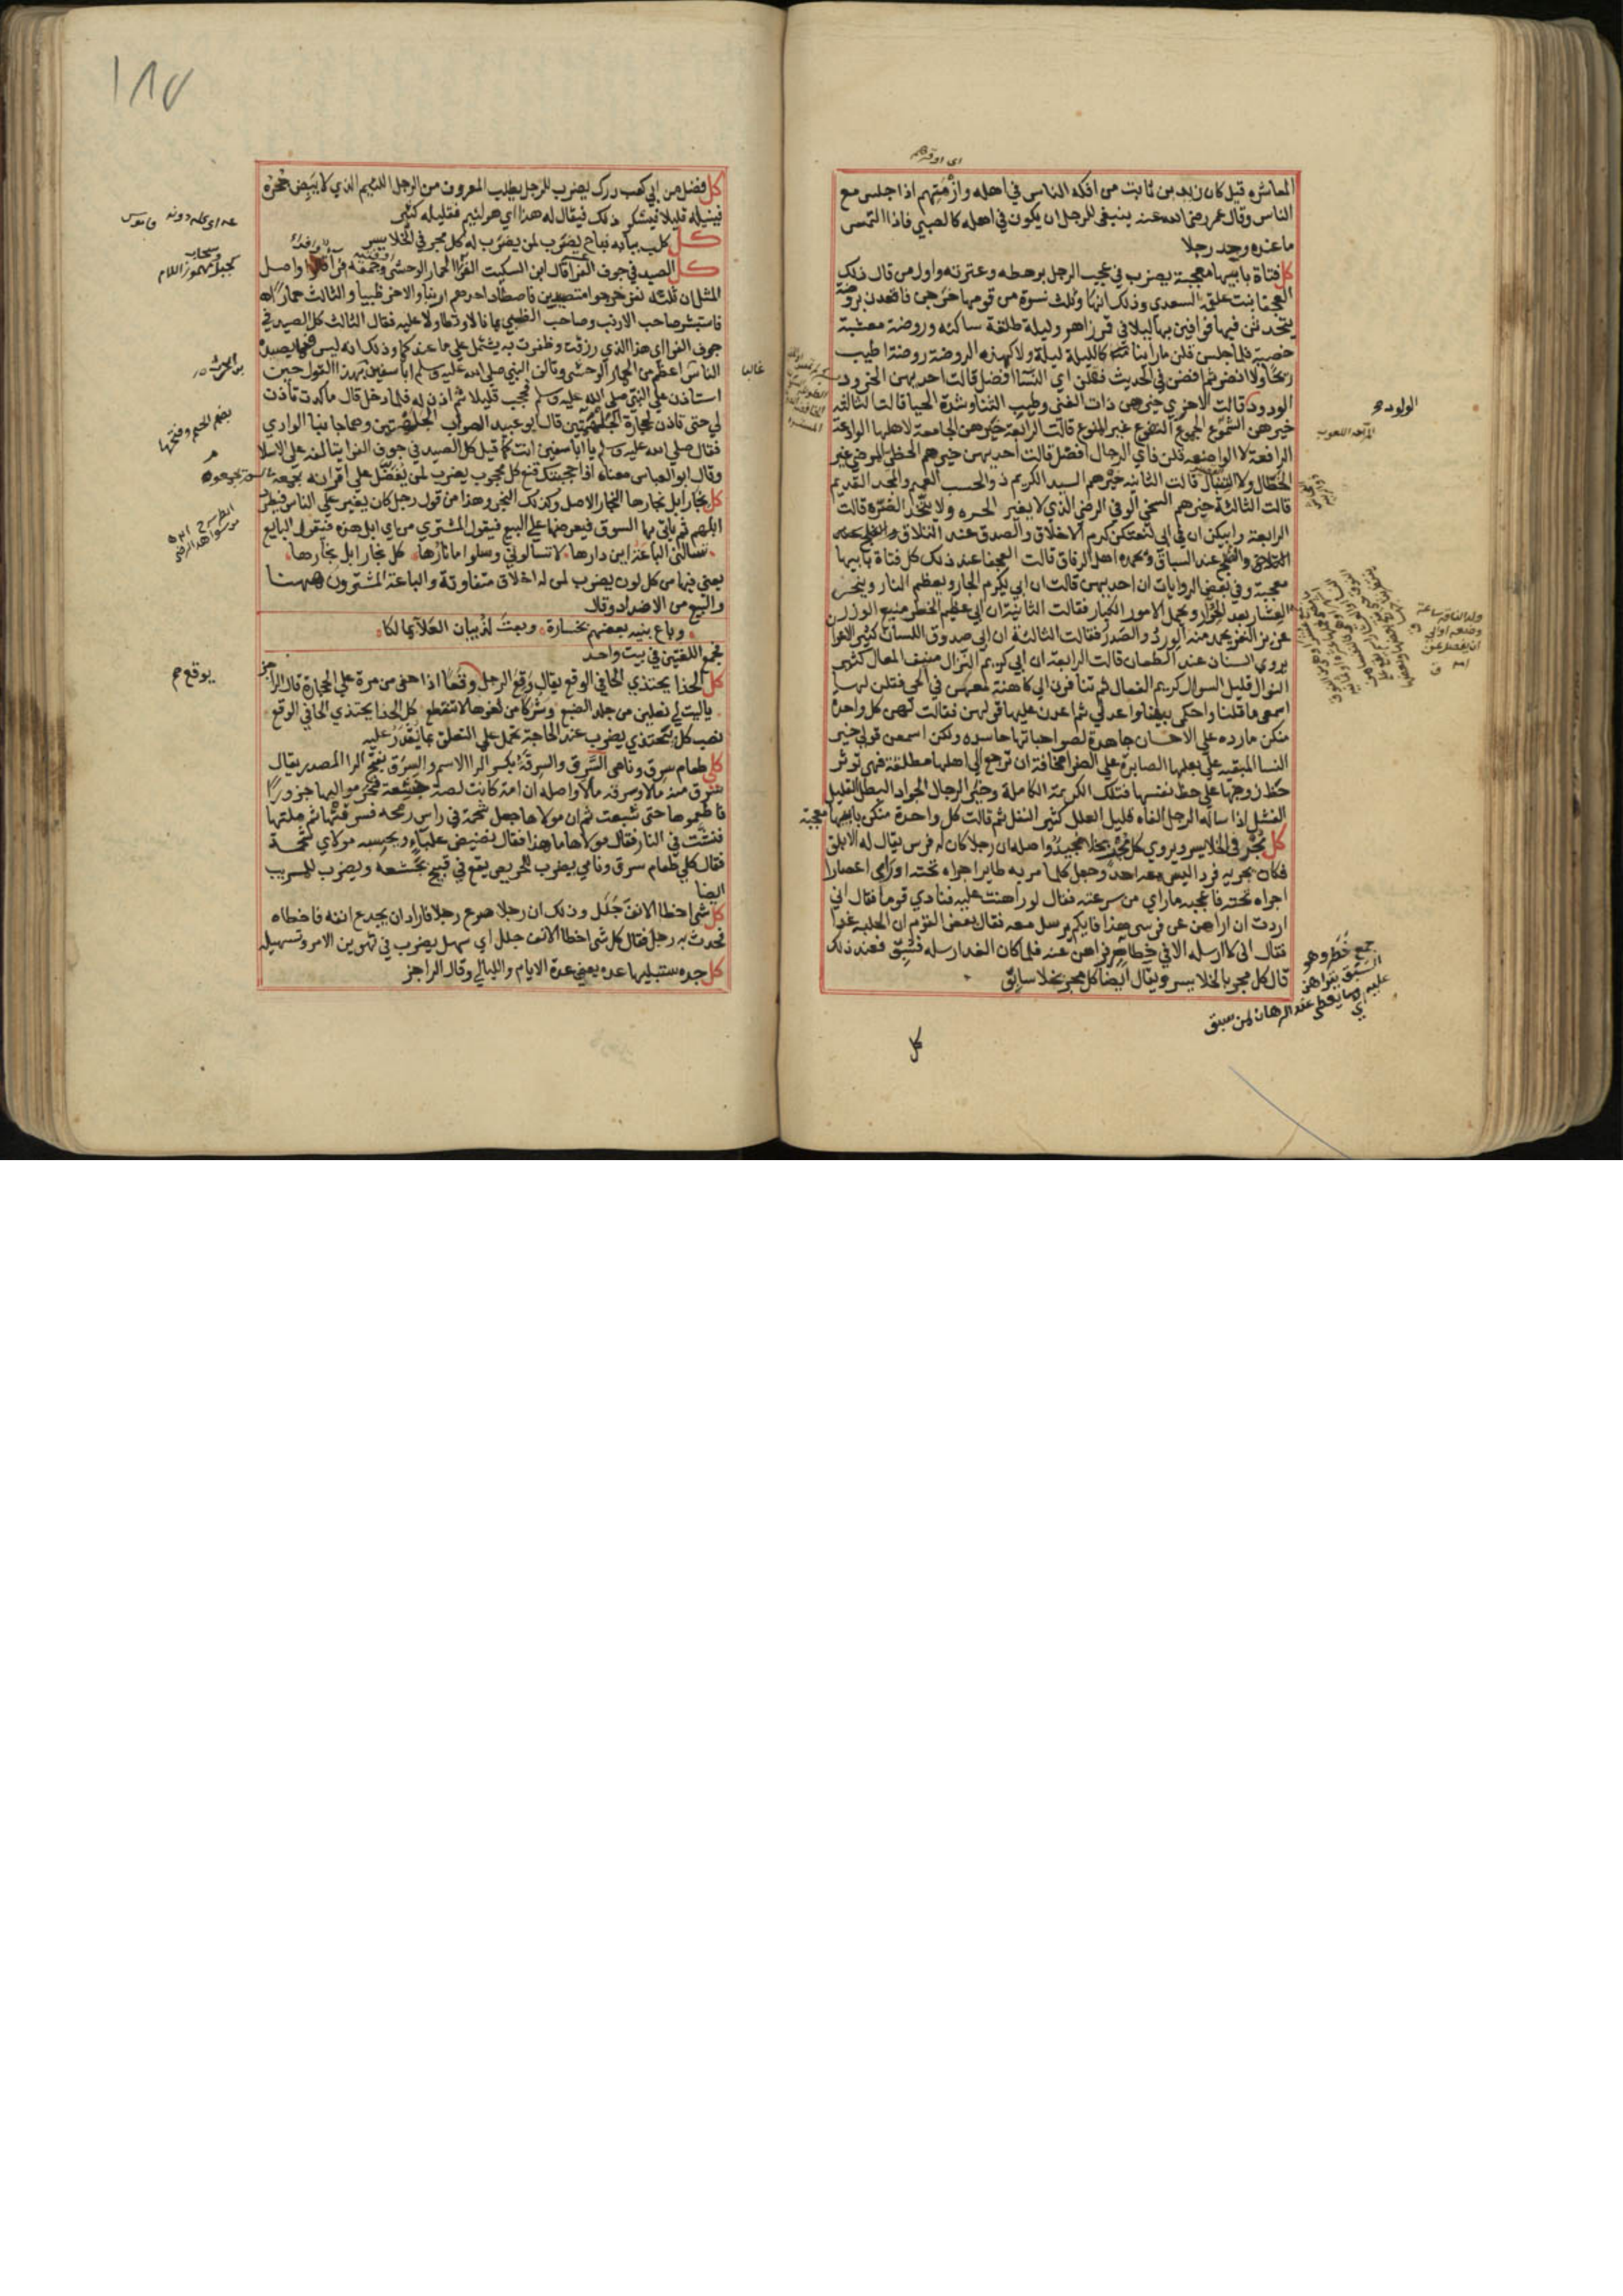 المعاشره قيل كان زيد بن ثابت من افكه الناس في اهله وازمتهم اذا جلس مع
الناس وقال عمر رضي الله عنه ينبغي للرجل ان يكون في اهله كالصبي فاذا التمس
ما عنده وجد رجلا
كل فتاة بابيها معجبة يضرب في عجب الرجل برهطه وعترته واول من قال ذلك
العجفا بنت علقمة السعدي وذلك انها وثلث نسوة من قومها خرجن فاتعدن بروضة
يتحدثن فيها فوافين بها ليلا في قمر زاهر وليلة طلقة ساكنه وروضة معشبة
خصبة فلما جلسن قلن ما راينا كالليلة ليلة ولا كهذه الروضة روضة اطيب
ريحا ولا انضر ثم افضن في الحديث فقلن اي النسا افضل قالت احديهن الخرود
الودود قالت الاخري خيرهن ذات الغنى وطيب الثنا وشدة الحيا قالت الثالثة
خيرهن الشموع الجموع النفوع غير المنوع قالت الرابعة خيرهن الجامعة لاهلها الوادعة
الرافعة لا الواضعة قلن فاي الرجال افضل قالت احديهن خيرهم الحظي الرضي غير
الحظال ولا التبال قالت الثانيه خيرهم السيد الكريم ذو الحسب العميم والمجد القديم
قالت الثالثة خيرهم السخي الوفي الرضي الذي لا يغير الحره ولا يتخذ الضره قالت
الرابعة وابيكن ان في ابي لنعتكن كرم الاخلاق والصدق عند التلاق
والفلج عند السباق ويحمده اهل الرفاق قالت العجفا عند ذلك كل فتاة بابيها
معجبة وفي بعض الروايات ان احديهن قالت ان ابي يكرم الجار ويعظم النار وينحر
العشار بعد الحوار ويحمل الامور الكبار فقالت الثانية ان ابي عظيم الخطر منيع الوزر
عزيز النفر يحمد منه الورد والصدر فقالت الثالثة ان ابي صدوق اللسان كثير الاعوان
يروي السنان عند الطعان قالت الرابعة ان ابي كريم النزال منيف المقال كثير
النوال قليل السوال كريم الفعال ثم تنافرن الي كاهنة معهن في الحي فقلن لها
اسمعي ما قلنا واحكمي بيننا واعدلي ثم اعدن عليها قولهن فقالت لهن كل واحدة
منكن مارده على الاحسان جاهدة لصواحباتها حاسده ولكن اسمعن قولي خير
النسا المبقيه على بعلها الصابرة على الضرا مخافة ان ترجع الي اهلها مطلقة فهي توثر
حظ زوجها على حظ نفسها فتلك الكريمة الكاملة وخير الرجال الجواد البطل القليل
الفشل اذا ساله الرجل الفاه قليل العلل كثير النفل ثم قالت كل واحدة منكن بابيها معجبة
كل مجر في الخلا يسر ويروي كل مجر بخلا مجيد واصله ان رجلا كان له فرس يقال له الابلق
فكان يجريه فردا ليس معه احد وجعل كلما مر به طاير اجراه تحته او راي اعصارا
اجراه تحته فاعجبه ما راي من سرعته فقال لو راهنت عليه فنادي قوما فقال اني
اردت ان اراهن عن فرسي هذا فايكم يرسل معه فقال بعض القوم ان الحلبه غدا
فقال اني لا ارسله الا في خطار فراهن عنه فلما كان الغد ارسله فسبق فعند ذلك
قال كل مجر بالخلا يسر ويقال ايضا كل مجر بخلا سابق
كل
الولود هـ
جمع خطر وهو
السبق يتراهن
عليه اي
ما يعطي عند الرهان لمن سبق
١٨٧
كل فضل من ابي كعب درك يضرب للرجل يطلب المعروف من الرجل اللئيم الذي لا يبض حجره
فينيله قليلا فيشكو ذلك فيقال له هذا اي هو لئيم فقليله كثير
كل كلب ببابه نباح يضرب لمن يضرب له كل مجر في الخلا يسر
كل الصيد في جوف الفرا قال ابن السكيت الفرا الحمار الوحشي وجمعه فرا واصل
المثل ان ثلثة نفر خرجوا متصيدين فاصطاد احدهم ارنبا والاخر ظبيا والثالث حمارا
فاستبشر صاحب الارنب وصاحب الظبي بما نالا وتطاولا عليه فقال الثالث كل الصيد في
جوف الفرا اي هذا الذي رزقت وظفرت به يشتمل على ما عندكما وذلك انه ليس مما يصيده
الناس اعظم من الحمار الوحشي وتالف النبي صلى الله عليه وسلم ابا سفين بهذا القول حين
استاذن على النبي صلى الله عليه وسلم فحجب قليلا ثم اذن له فلما دخل قال ما كدت تاذن
لي حتى تاذن لحجارة الجلهمتين قال ابو عبيد الصواب الجلهتين وهما جانبا الوادي
فقال صلى الله عليه وسلم يا ابا سفين انت كما قيل كل الصيد في جوف الفرا يتالفه على الاسلام
وقال ابو العباس معناه اذا حجبتك قنع كل محجوب يضرب لمن يفضل على اقرانه
كل نجار ابل نجارها النجار الاصل وكذلك النجر وهذا من قول رجل كان يغير على الناس فيطرد
ابلهم ثم ياتي بها السوق فيعرضها على البيع فيقول المشتري من اي ابل هذه فيقول البايع
تسالني الباعة اين دارها لا تسالوني وسلوا ما نارها كل نجار ابل نجارها
يعني فيها من كل لون يضرب لمن له اخلاق متفاوتة والباعة المشترون ههنا
والبيع من الاضداد وقال
وباع بنيه بعضهم بخسارة وبعت لذبيان العلاء بمالكا
فجمع اللغتين في بيت واحد
كل الحذا يحتذي الحافي الوقع يقال وقع الرجل وقعا اذا حفي من مره علي الحجارة قال الراجز
ياليت لي نعلين من جلد الضبع وشركا من ثفرها لا تنقطع كل الحذا يحتذي الحافي الوقع
نصب كل بيحتذي يضرب عند الحاجة تحمل علي التعلق بما يقدر عليه
كلي طعام سرق ونامي السرق والسرقة بكسر الرا الاسم والسرق بفتح الرا المصدر يقال
سرق منه مالا وسرقه مالا واصله ان امة كانت لصة جشعة فنحر مواليها جزورا
فاطعموها حتى شبعت ثم ان مولاها جعل شحمة في راس رمحه فسرقتها ثم ملتها
فنشت في النار فقال مولاها ما هذا فقال نضيض علباء ويحسبه مولاي شحمة
فقال كلي طعام سرق ونامي يضرب للحريص يقع في قبيح لجشعه ويضرب للمريب
ايضا
كل شي اخطا الانف جلل وذلك ان رجلا صرع رجلا فاراد ان يجدع انفه فاخطاه
فحدث به رجل فقال كل شي اخطا الانف جلل اي سهل يضرب في تهوين الامر وتسهيله
كل جده ستبليها عده يعني عدة الايام والليالي وقال الراجز
غالبا
بضم الجيم وفتحها